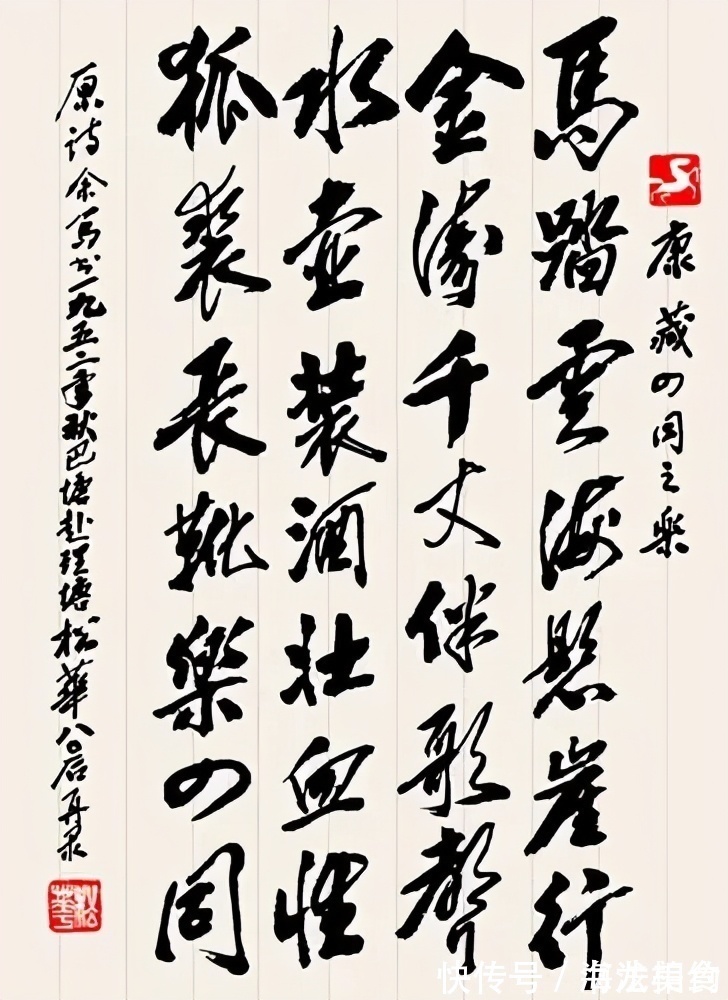 康藏四同之樂
馬踏雲海懸崖行
金濤千丈伴歌聲
水壺裝酒壮血性
狐裘長靴樂四同
原诗余写于一九五二年秋巴塘赴理塘松華八〇后再录
松華
快传号 /